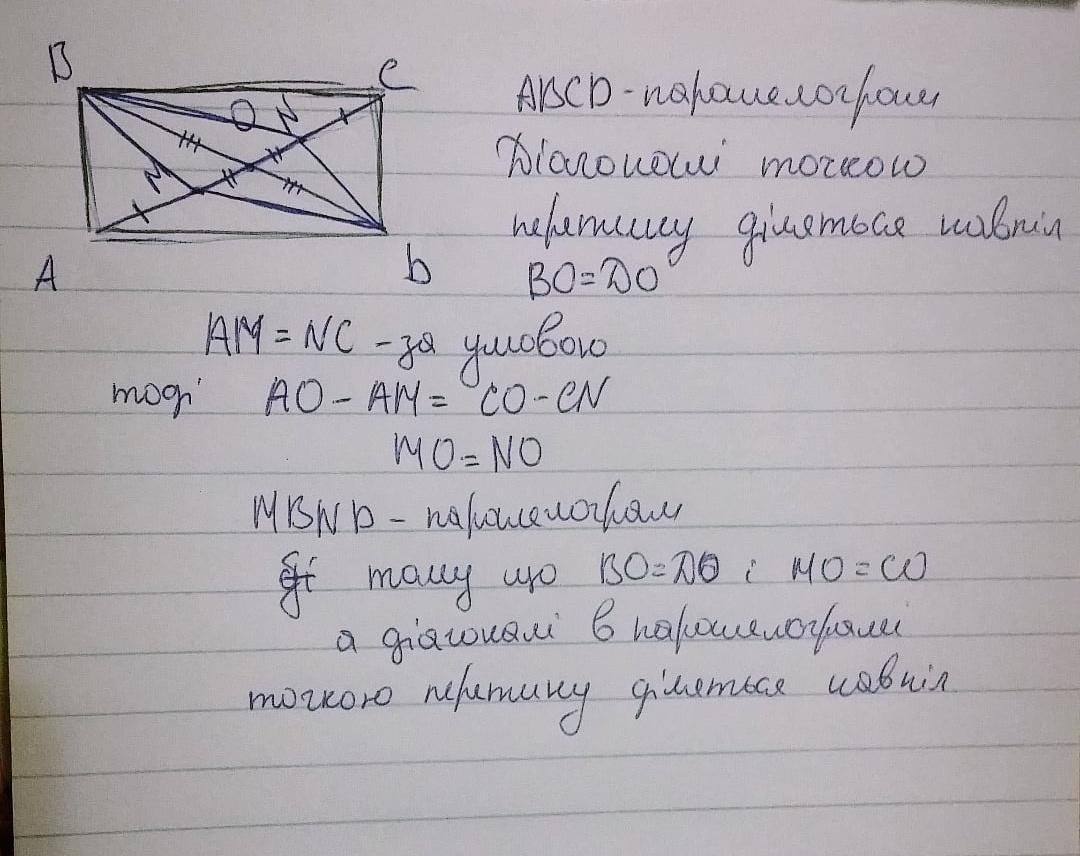 B
C
O
N
M
A
D
ABCD - паралелограм
Діагоналі точкою
перетину діляться навпіл
BO = DO
AM = NC - за умовою
тоді AO - AM = CO - CN
MO = NO
MBND - паралелограм
тому що BO = DO і MO = CO
а діагоналі в паралелограмі
точкою перетину діляться навпіл